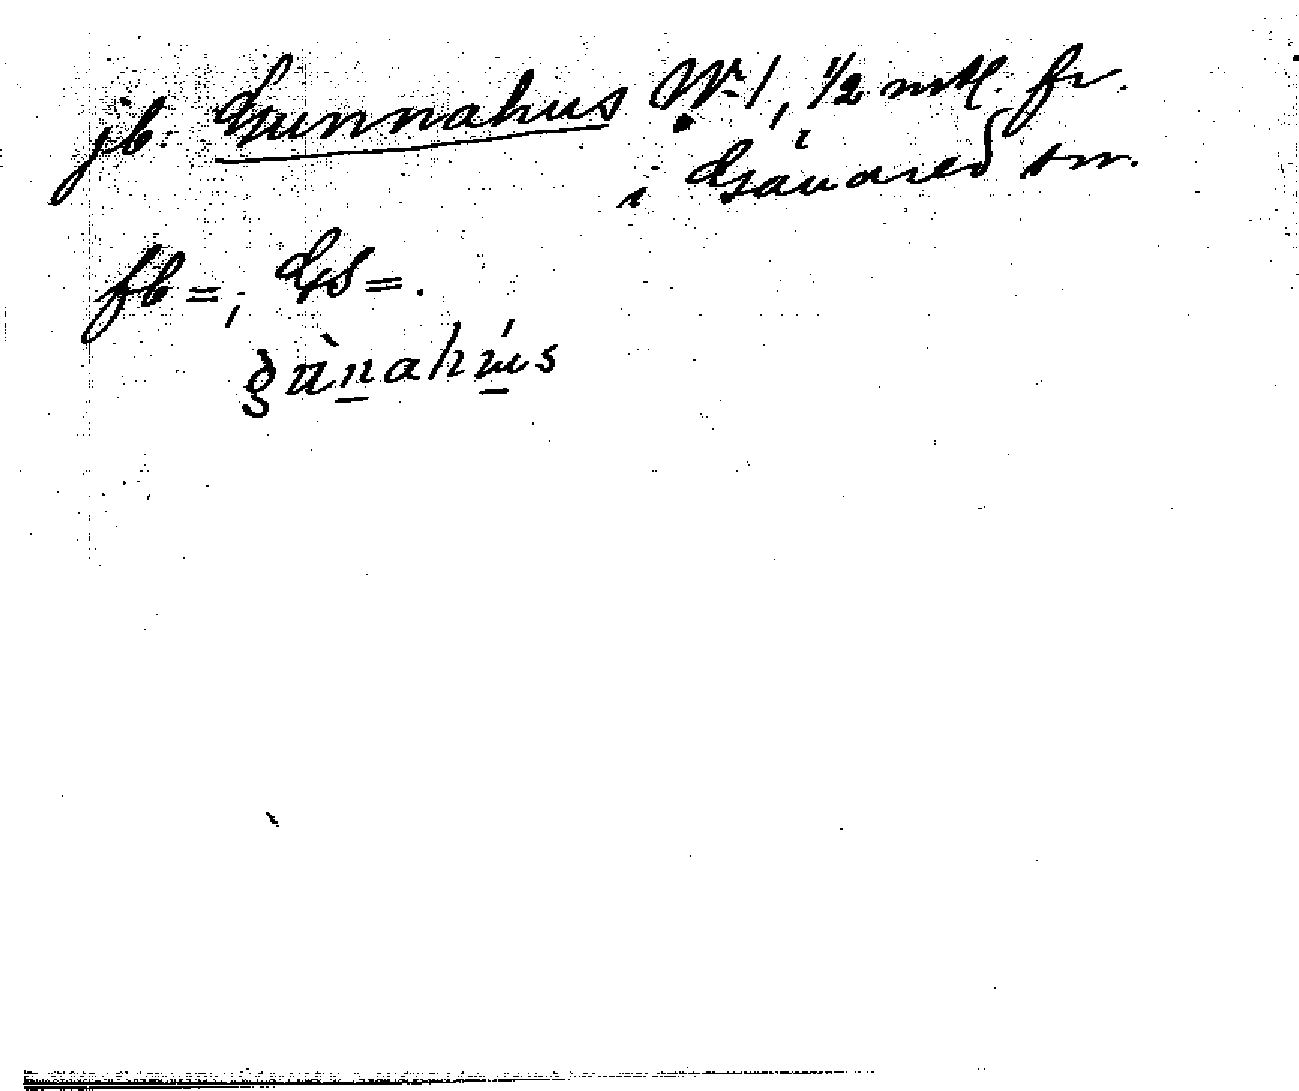 jb. Gunnahus No 1, 1/2 mtl. fr.
i Gåvared sn.
fb =, Gs =.
gùnahús